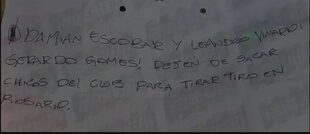 DAMIAN ESCOBAR Y LEANDRO VINARDI
GERARDO GOMES! DEJEN DE SACAR
CHICOS DEL CLUB PARA TIRAR TIRO EN
ROSARIO.